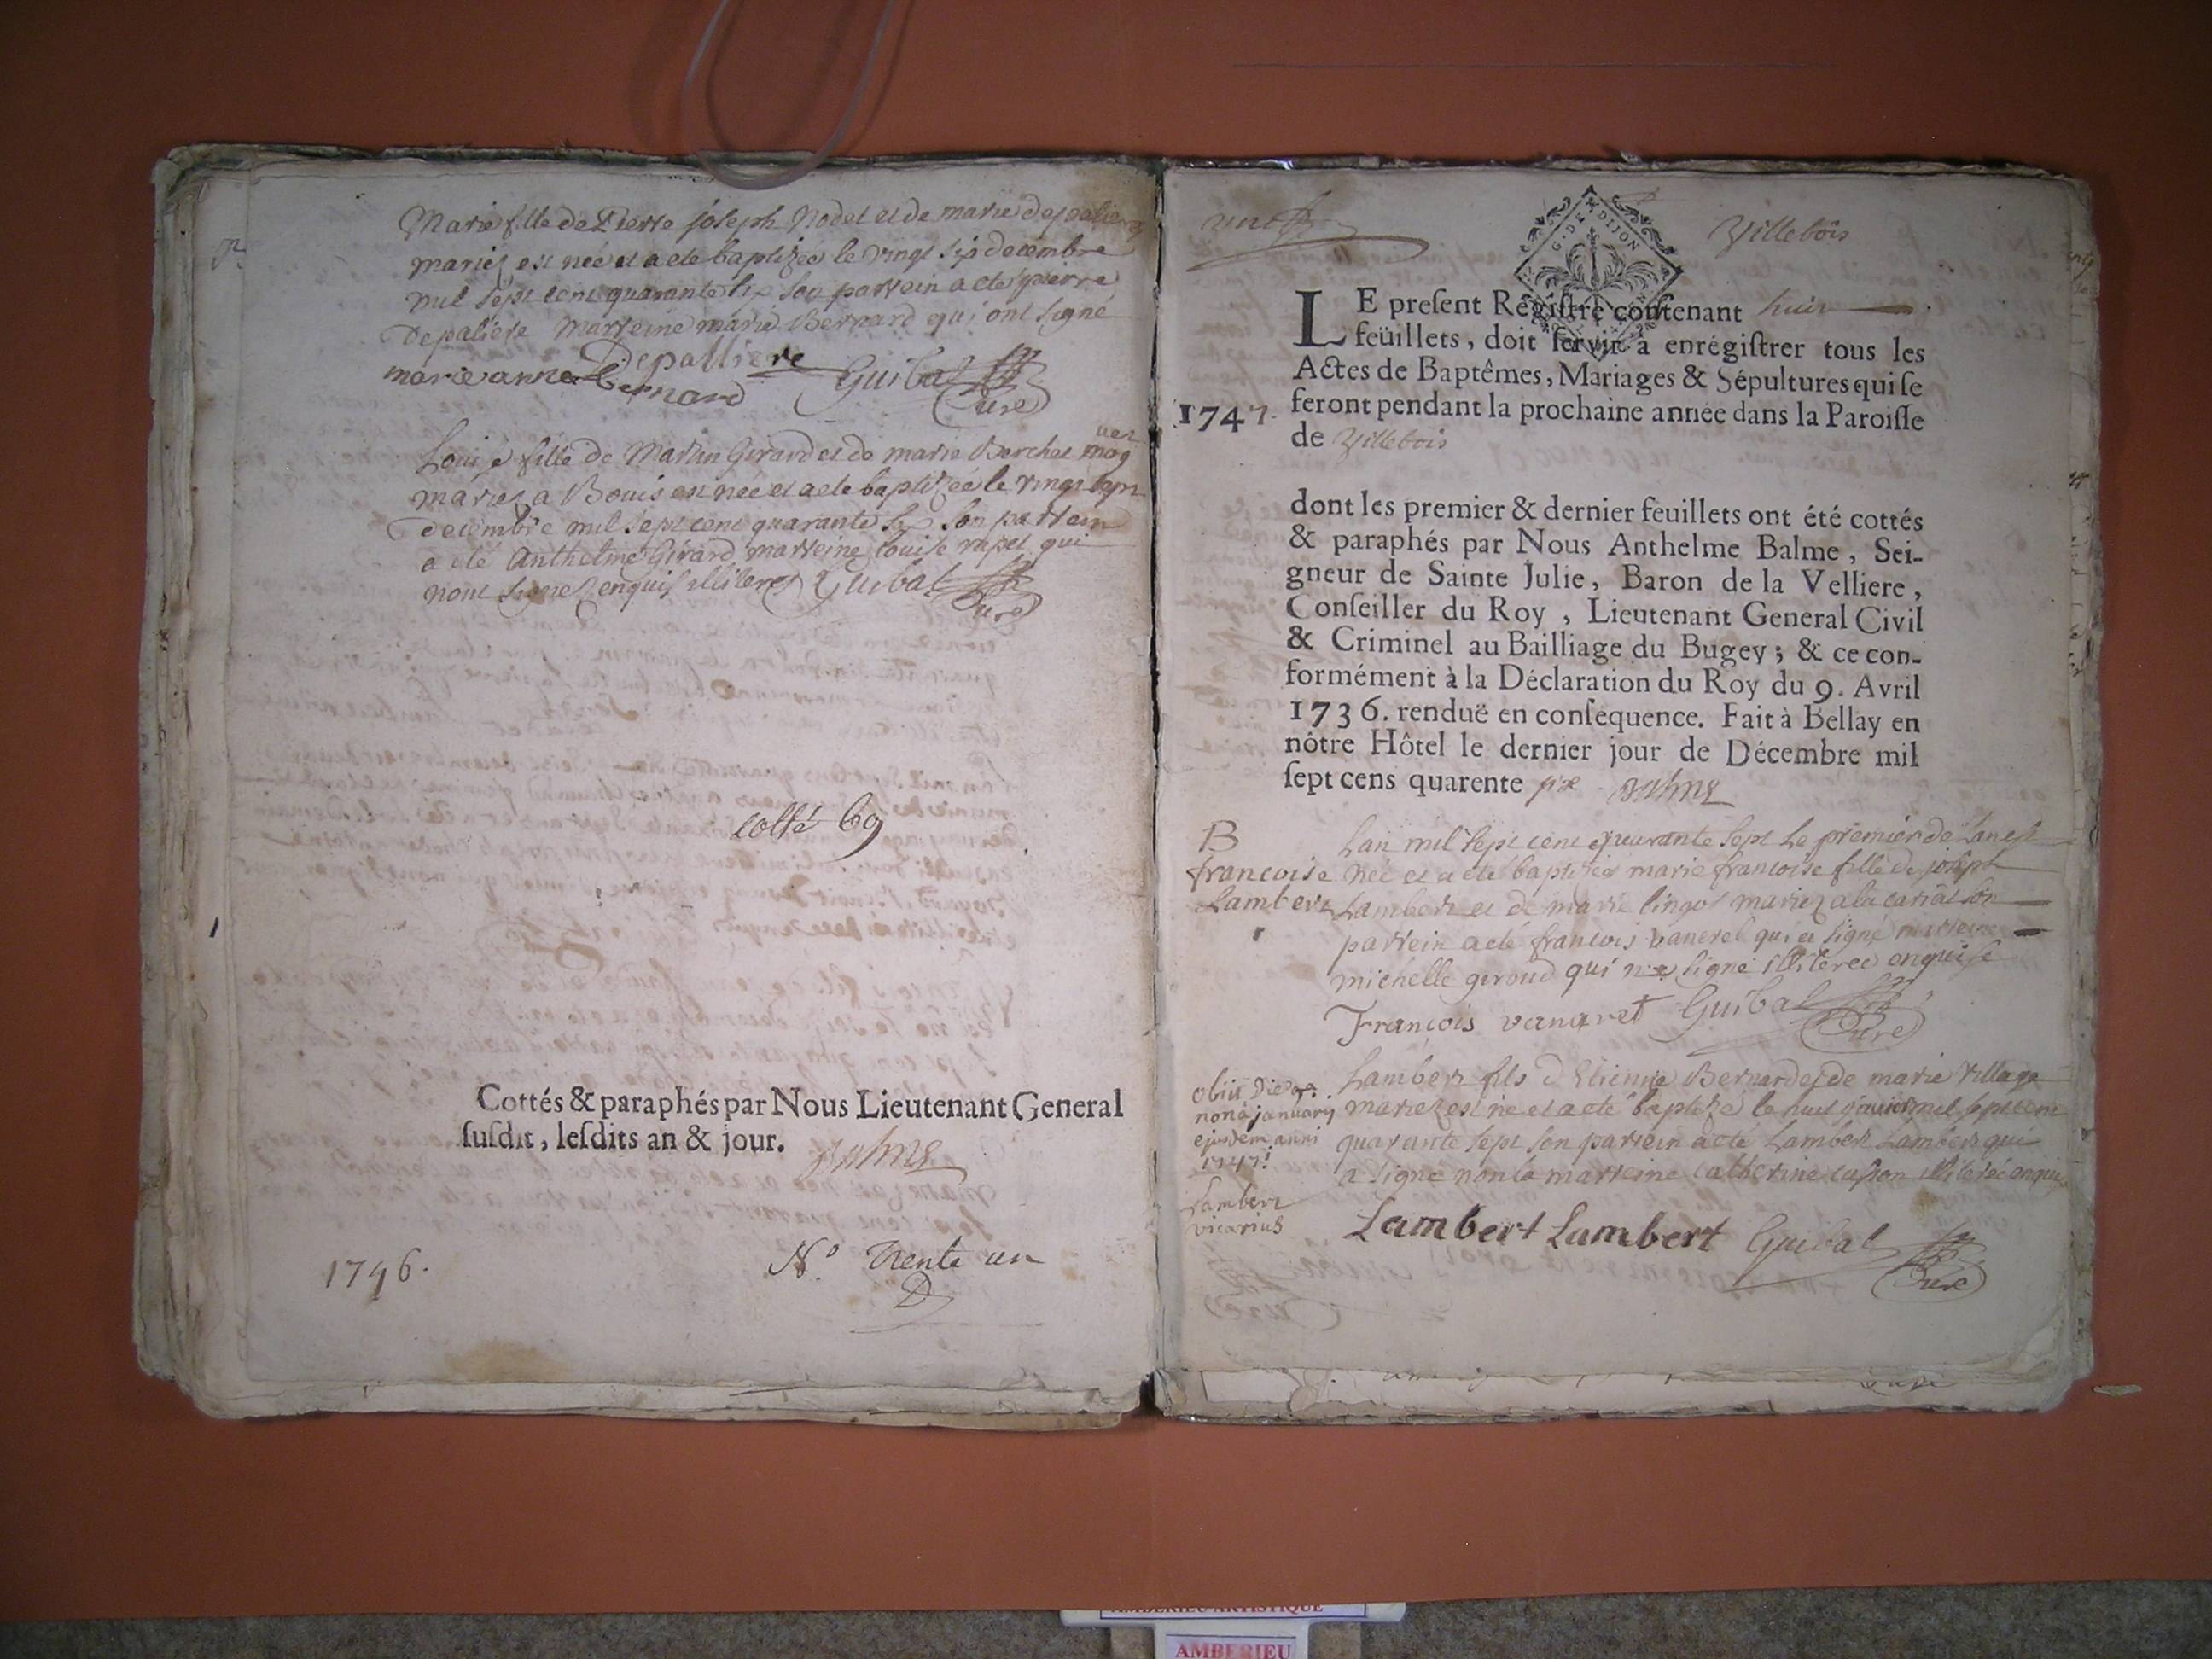 Marie fille de Pierre joseph Nodet et de marie depaliere
mariez est née et a eté baptizée le vingt six decembre
mil sept cent quarante six son parrein a eté pierre
Depaliere marreine marie Bernard qui ont signé
Depalliere
marie anne bernard Guibal
Curé
Louise fille de Martin Girard et de marie Berchet
mariez a Bouis est née et a eté baptizée le vingt sept
decembre mil sept cent quarante six son parrein
a eté Anthelme Girard marreine louise rapet qui
nont signez enquis illiterez Guibal
Curé
cotté 69
Cottés & paraphés par Nous Lieutenant General
susdit, lesdits an & jour.
Balme
1746.
N.º trente un
Villebois
G. DE DIJON
LE preſent Régiſtre contenant huit
feüillets, doit ſervir à enrégiſtrer tous les
Actes de Baptêmes, Mariages & Sépultures qui ſe
1747. feront pendant la prochaine année dans la Paroiſſe
de Villebois
dont les premier & dernier feuillets ont été cottés
& paraphés par Nous Anthelme Balme, Sei-
gneur de Sainte Julie, Baron de la Velliere,
Conſeiller du Roy, Lieutenant General Civil
& Criminel au Bailliage du Bugey; & ce con-
formément à la Déclaration du Roy du 9. Avril
1736. renduë en conſequence. Fait à Bellay en
nôtre Hôtel le dernier jour de Décembre mil
ſept cens quarente six Balme
B
francoise
Lambert
Lan mil sept cent quarante sept le premier de Lan est
née et a eté baptizée marie francoise fille de joseph
Lambert et de marie lingot mariez
parrein a eté francois vaneret qui a signé marreine
michelle giroud qui na signé illiteree enquise
François vanaret Guibal
Curé
obiit Die
nona january
ejusdem anni
1747.
Lambert
vicarius
Lambert fils d'Etienne Bernard et de marie village
mariez est né et a eté baptizé le huit janvier mil sept cent
quarante sept son parrein a eté Lambert Lambert qui
a signé non la marreine Catherine illiteree enquise
Lambert Lambert Guibal
Curé
AMBERIEU ARTISTIQUE
AMBERIEU